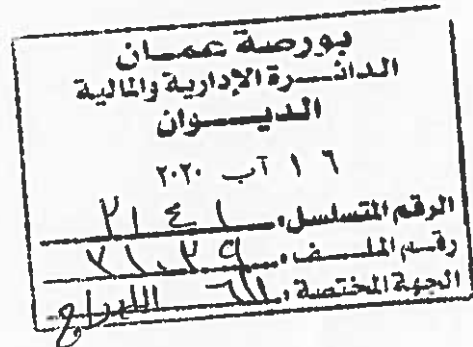 بورصة عمان
الدائرة الإدارية والمالية
الديوان
١٦ آب ٢٠٢٠
الرقم المتسلسل: ٢١٤١
رقم الملف:
الجهة المختصة: